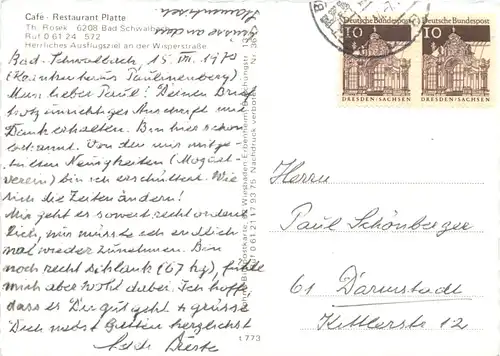 Café - Restaurant Platte
Th. Rosek 6208 Bad Schwalbach
Ruf 0 61 24 572
Herrliches Ausflugsziel an der Wisperstraße.
Bad-Schwalbach, 15. VII. 1970
(Krankenhaus Paulinenberg)
Mein lieber Paul! Deinen Brief
trotz unrichtiger Anschrift mit
Dank erhalten. Bin hier schon
bekannt. Von den mir mitge-
teilten Neuigkeiten
verein) bin ich erschüttert. Wie
sich die Zeiten ändern!
Mir geht es soweit recht ordent-
lich, nur müsste ich endlich
mal wieder zunehmen. Bin
noch recht schlank (67 kg), fühle
mich aber wohl dabei. Ich hoffe
dass es Dir gut geht + grüsse
Dich nebst Gattin herzlichst
t 773
Wiesbaden-Erbenheim
Nachdruck verboten
Deutsche Bundespost
10
DRESDEN/SACHSEN
Deutsche Bundespost
10
DRESDEN/SACHSEN
Herrn
Paul Schönberger
61 Darmstadt
Kittlerstr 12